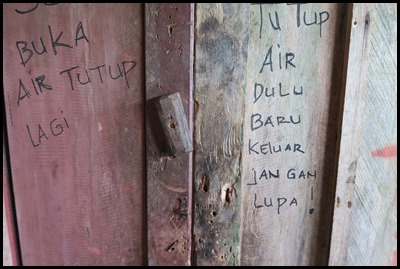 BUKA
AIR TUTUP
LAGI
TUTUP
AIR
DULU
BARU
KELUAR
JANGAN
LUPA !